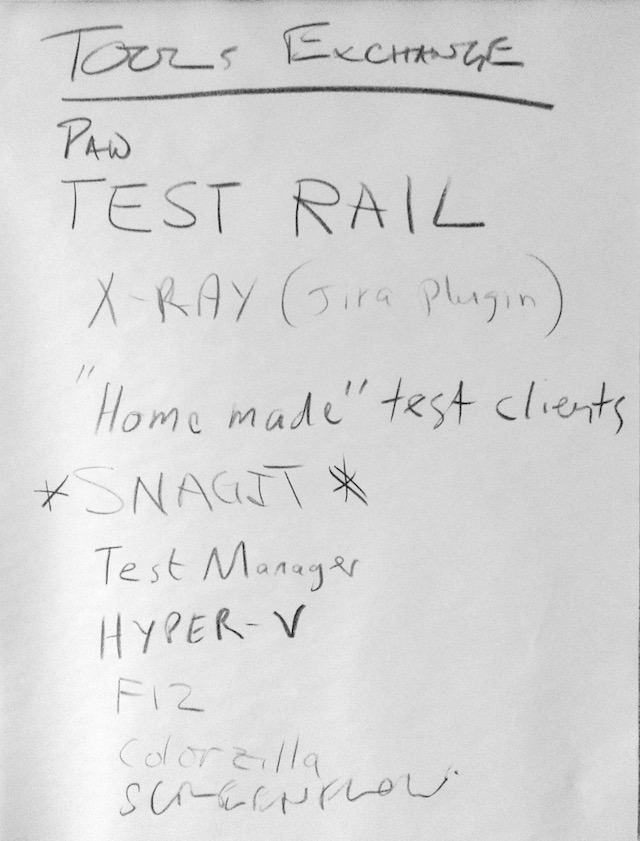 TOOLS EXCHANGE
PAW
TEST RAIL
X-RAY (Jira plugin)
"Home made" test clients
*SNAGIT*
Test Manager
HYPER-V
F12
Colorzilla
SCREENFLOW